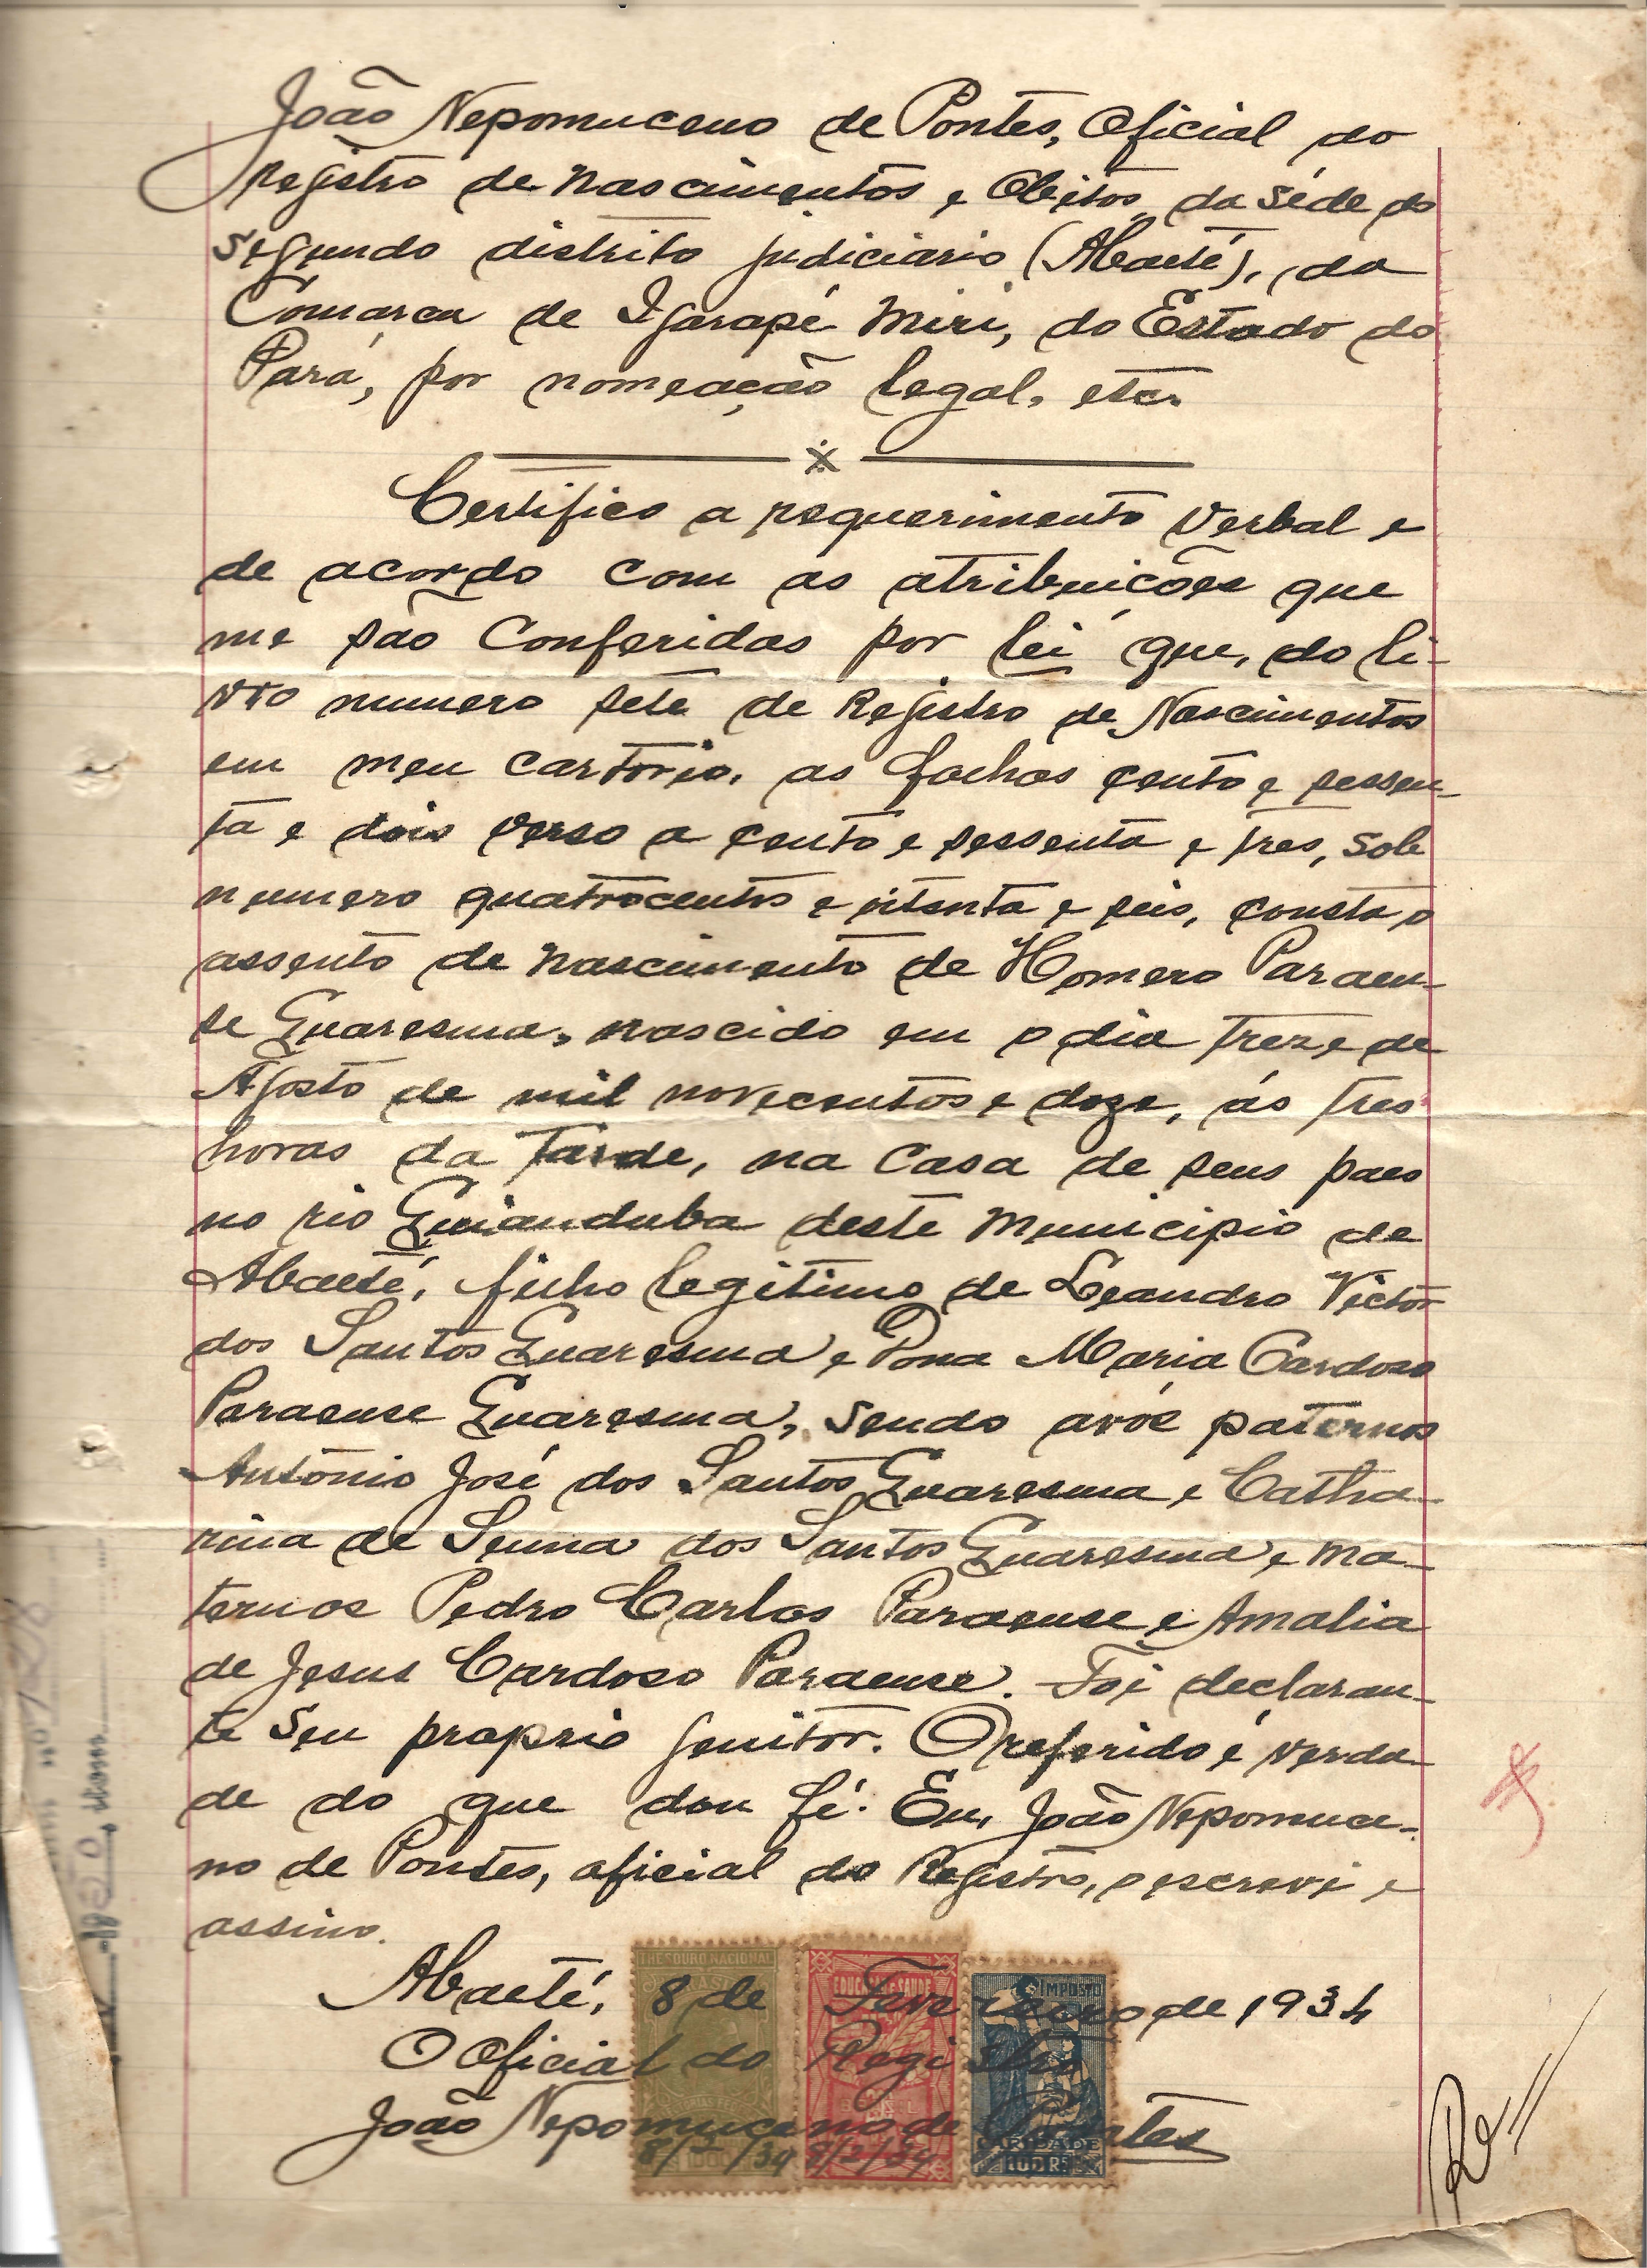 João Nepomuceno de Pontes, Oficial do
Registro de Nascimentos e Obitos, da séde do
segundo distrito judiciario (Abaeté), da
Comarca de Igarapé Miri, do Estado do
Pará, por nomeação legal, etc.
Certifico a requerimento verbal e
de acordo com as atribuições que
me são conferidas por lei que, do li-
vro numero sete de Registro de Nascimentos
em meu cartorio, as folhas cento e sessen-
ta e dois verso a cento e sessenta e tres, sob
numero quatrocentos e oitenta e seis, consta o
assento de nascimento de Homero Paraen-
se Quaresma, nascido em o dia treze de
Agosto de mil novecentos e doze, ás tres
horas da tarde, na casa de seus paes
no rio Quianduba deste Municipio de
Abaeté, filho legitimo de Leandro Victor
dos Santos Quaresma e Dona Maria Cardoso
Paraense Quaresma, sendo avós paternos
Antonio José dos Santos Quaresma e Catha-
rina de Senna dos Santos Quaresma e ma-
ternos Pedro Carlos Paraense e Amalia
de Jesus Cardoso Paraense. Foi declaran-
te seu proprio genitor. O referido é verda-
de do que dou fé. Eu, João Nepomuce-
no de Pontes, oficial do Registro, o escrevi e
assino.
THESOURO NACIONAL
EDUCAÇÃO SAUDE
IMPOSTO
Abaeté, 8 de Fevereiro de 1934
O Oficial do Registro
BRASIL
João Nepomuceno de Pontes
8/2/34 8/2/34
CARIDADE
100 Rs